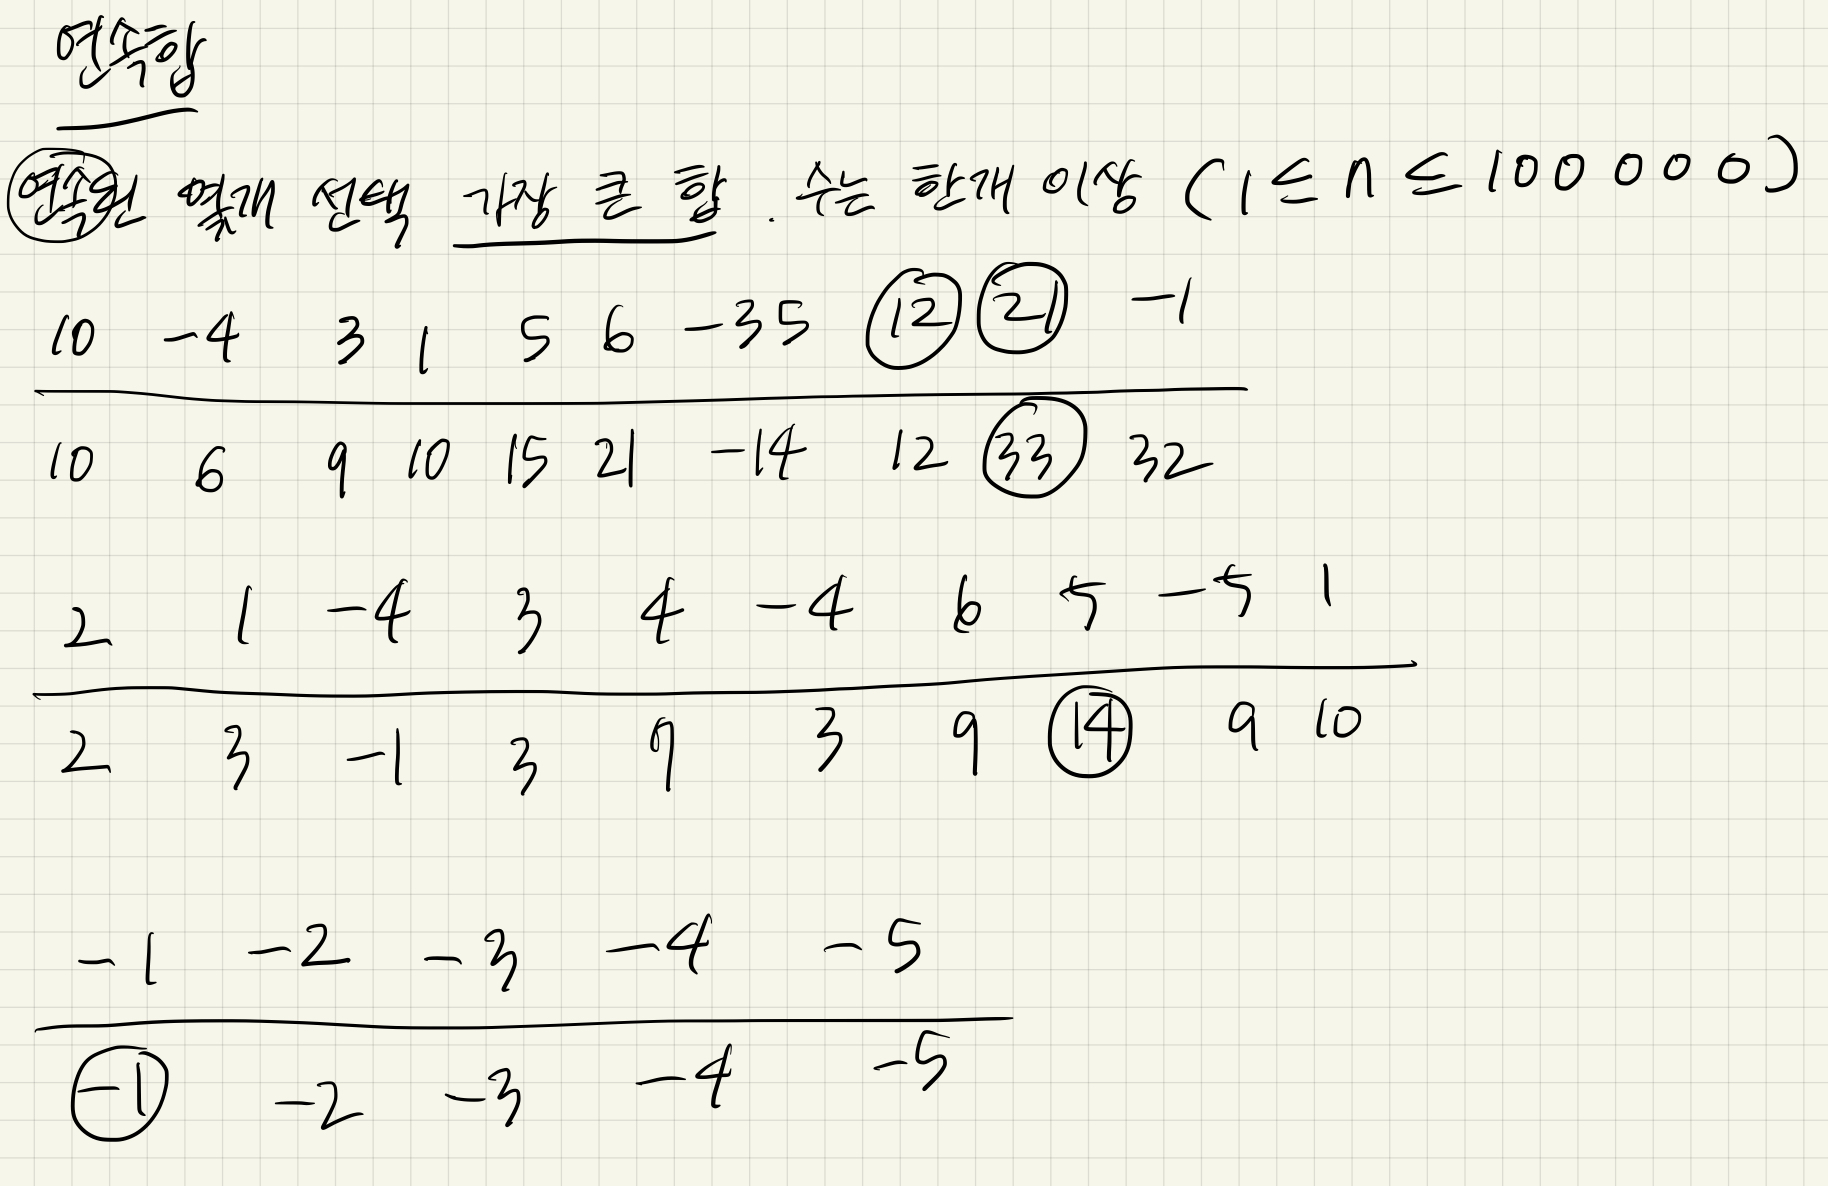 연속합
연속된 몇개 선택 가장 큰 합. 수는 한개 이상 (1 ≤ n ≤ 100000)
10 -4 3 1 5 6 -35 12 21 -1
10 6 9 10 15 21 -14 12 33 32
2 1 -4 3 4 -4 6 5 -5 1
2 3 -1 3 7 3 9 14 9 10
-1 -2 -3 -4 -5
-1 -2 -3 -4 -5